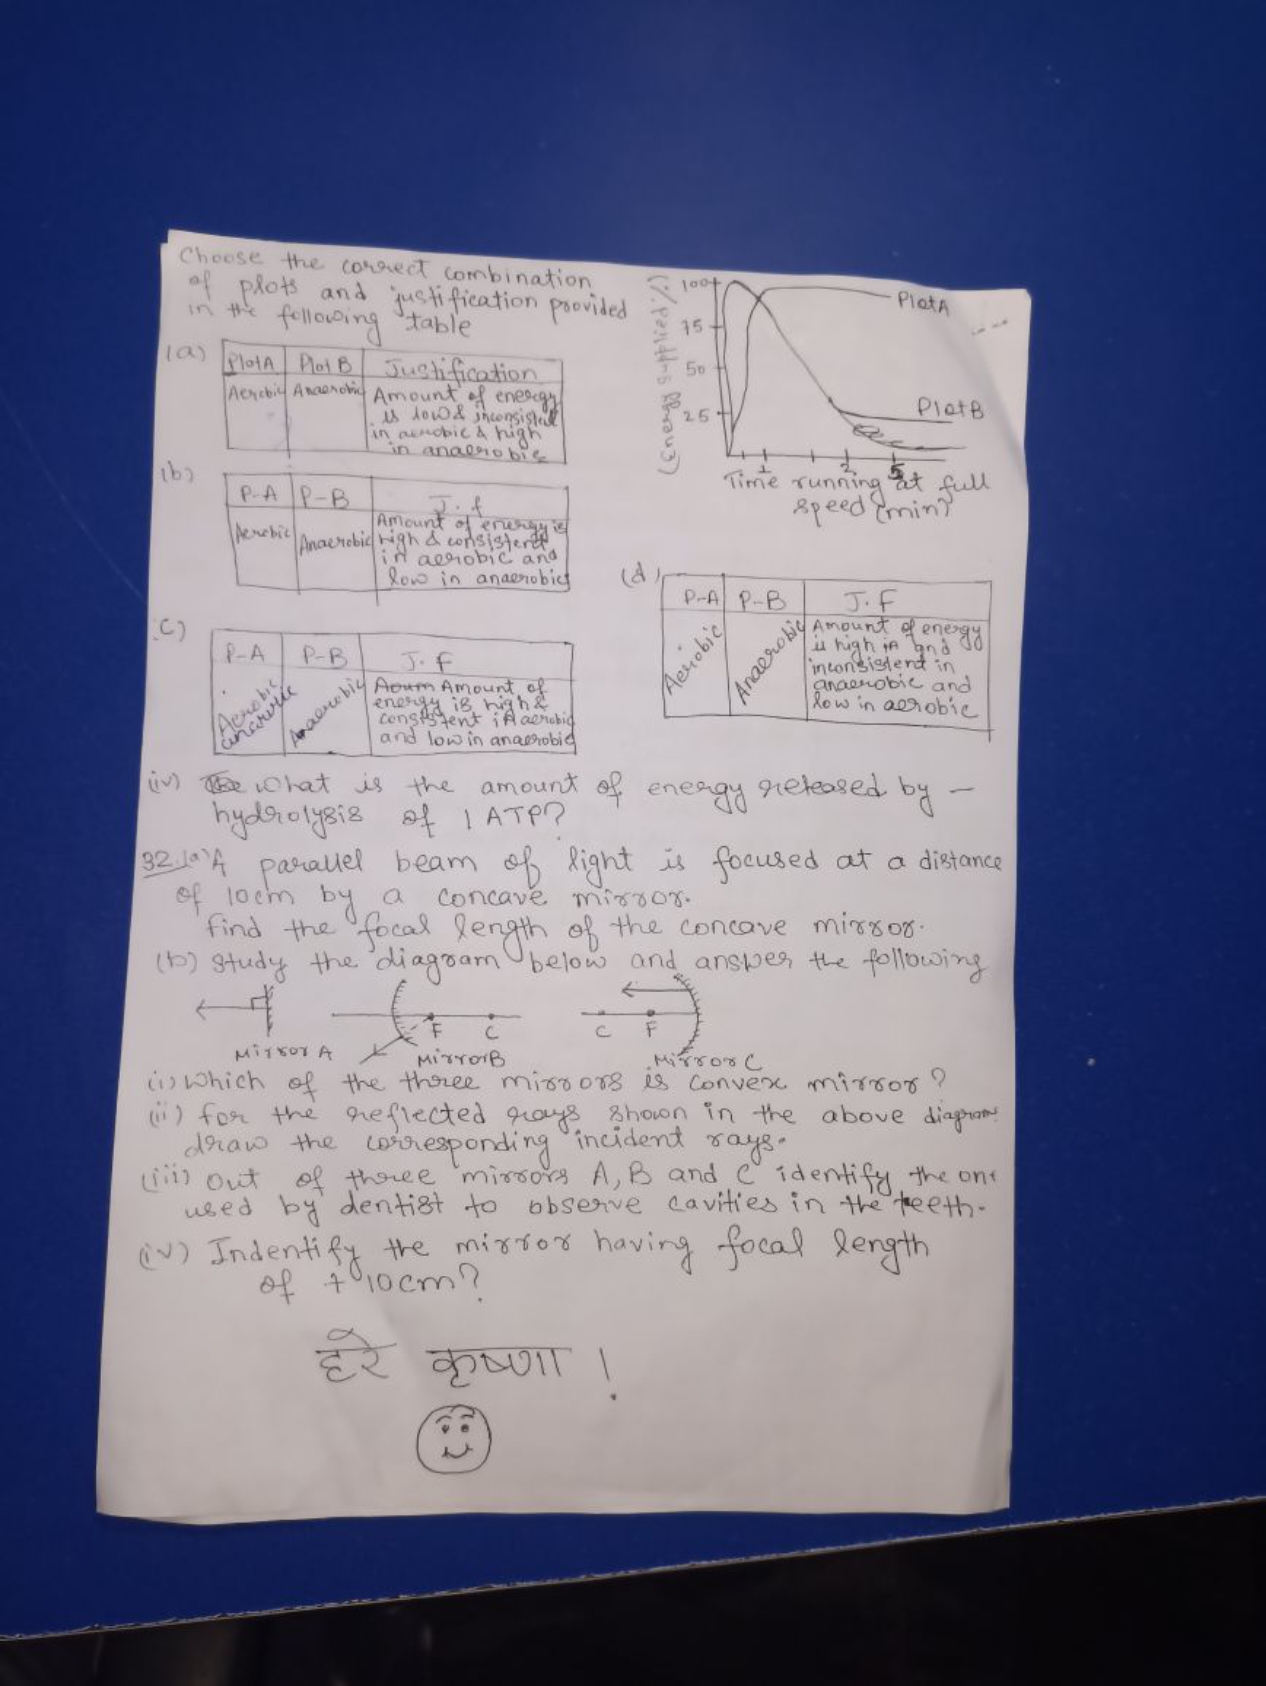 Choose the correct combination
of plots and justification provided
in the following table
(a)
PlotA Plot B Justification
Aerobic Anaerobic Amount of energy
is low & inconsistent
in aerobic & high
in anaerobic
(Energy supplied %)
100
75
50
25
PlotA
PlotB
1 2 5
Time running at full
speed (min)
(b)
P-A P-B J.f
Aerobic Anaerobic Amount of energy is
high & consistent
in aerobic and
low in anaerobic
(c)
P-A P-B J.F
Aerobic Anaerobic Amount of
energy is high &
consistent in aerobic
and low in anaerobic
(d)
P-A P-B J.F
Aerobic Anaerobic Amount of energy
is high in and
inconsistent in
anaerobic and
low in aerobic
(iv) What is the amount of energy released by -
hydrolysis of 1 ATP?
32.(a) A parallel beam of light is focused at a distance
of 10cm by a concave mirror.
find the focal length of the concave mirror.
(b) Study the diagram below and answer the following
F C C F
Mirror A MirrorB Mirror C
(i) Which of the three mirrors is convex mirror?
(ii) for the reflected rays shown in the above diagrams
draw the corresponding incident rays.
(iii) Out of three mirrors A, B and C identify the one
used by dentist to observe cavities in the teeth.
(iv) Indentify the mirror having focal length
of + 10cm?
हरे कृष्णा !